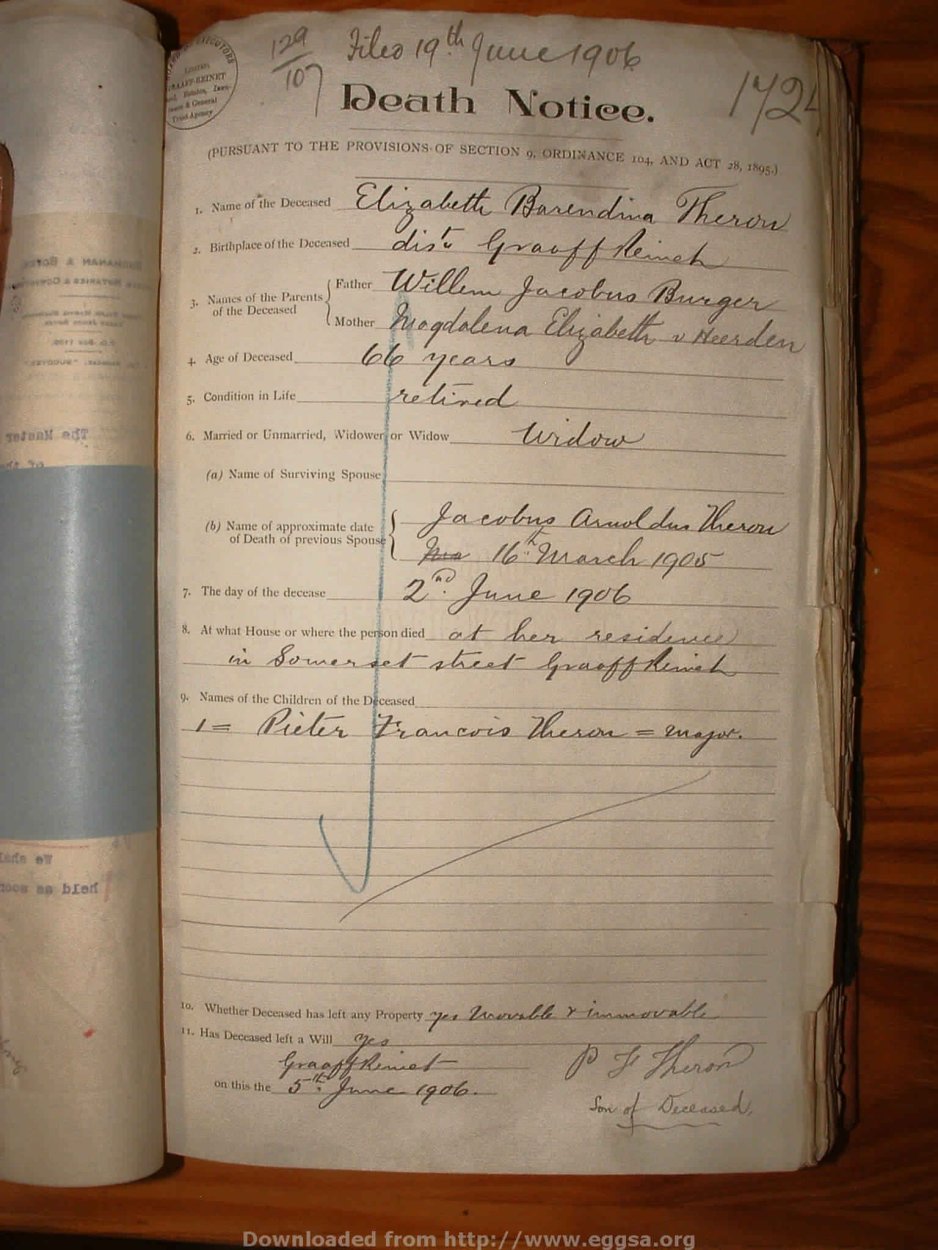 129
107
Filed 19th June 1906
172
GRAAFF-REINET
& General
Trust Agency
Death Notice.
(PURSUANT TO THE PROVISIONS OF SECTION 9, ORDINANCE 104, AND ACT 28, 1895.)
1. Name of the Deceased Elizabeth Barendina Theron
2. Birthplace of the Deceased dist. Graaff Reinet
3. Names of the Parents of the Deceased { Father Willem Jacobus Burger
Mother Magdalena Elizabeth v Heerden
4. Age of Deceased 66 years
5. Condition in Life retired
6. Married or Unmarried, Widower or Widow Widow
(a) Name of Surviving Spouse
(b) Name of approximate date of Death of previous Spouse { Jacobus Arnoldus Theron
16th March 1905
7. The day of the decease 2nd June 1906
8. At what House or where the person died at her residence
in Somerset street Graaff Reinet
9. Names of the Children of the Deceased
1 = Pieter Francois Theron = major.
10. Whether Deceased has left any Property yes Movable & immovable
11. Has Deceased left a Will yes
Graaff Reinet
on this the 5th June 1906.
P F Theron
Son of Deceased.
The Master
We shal
held as soon
Downloaded from http://www.eggsa.org